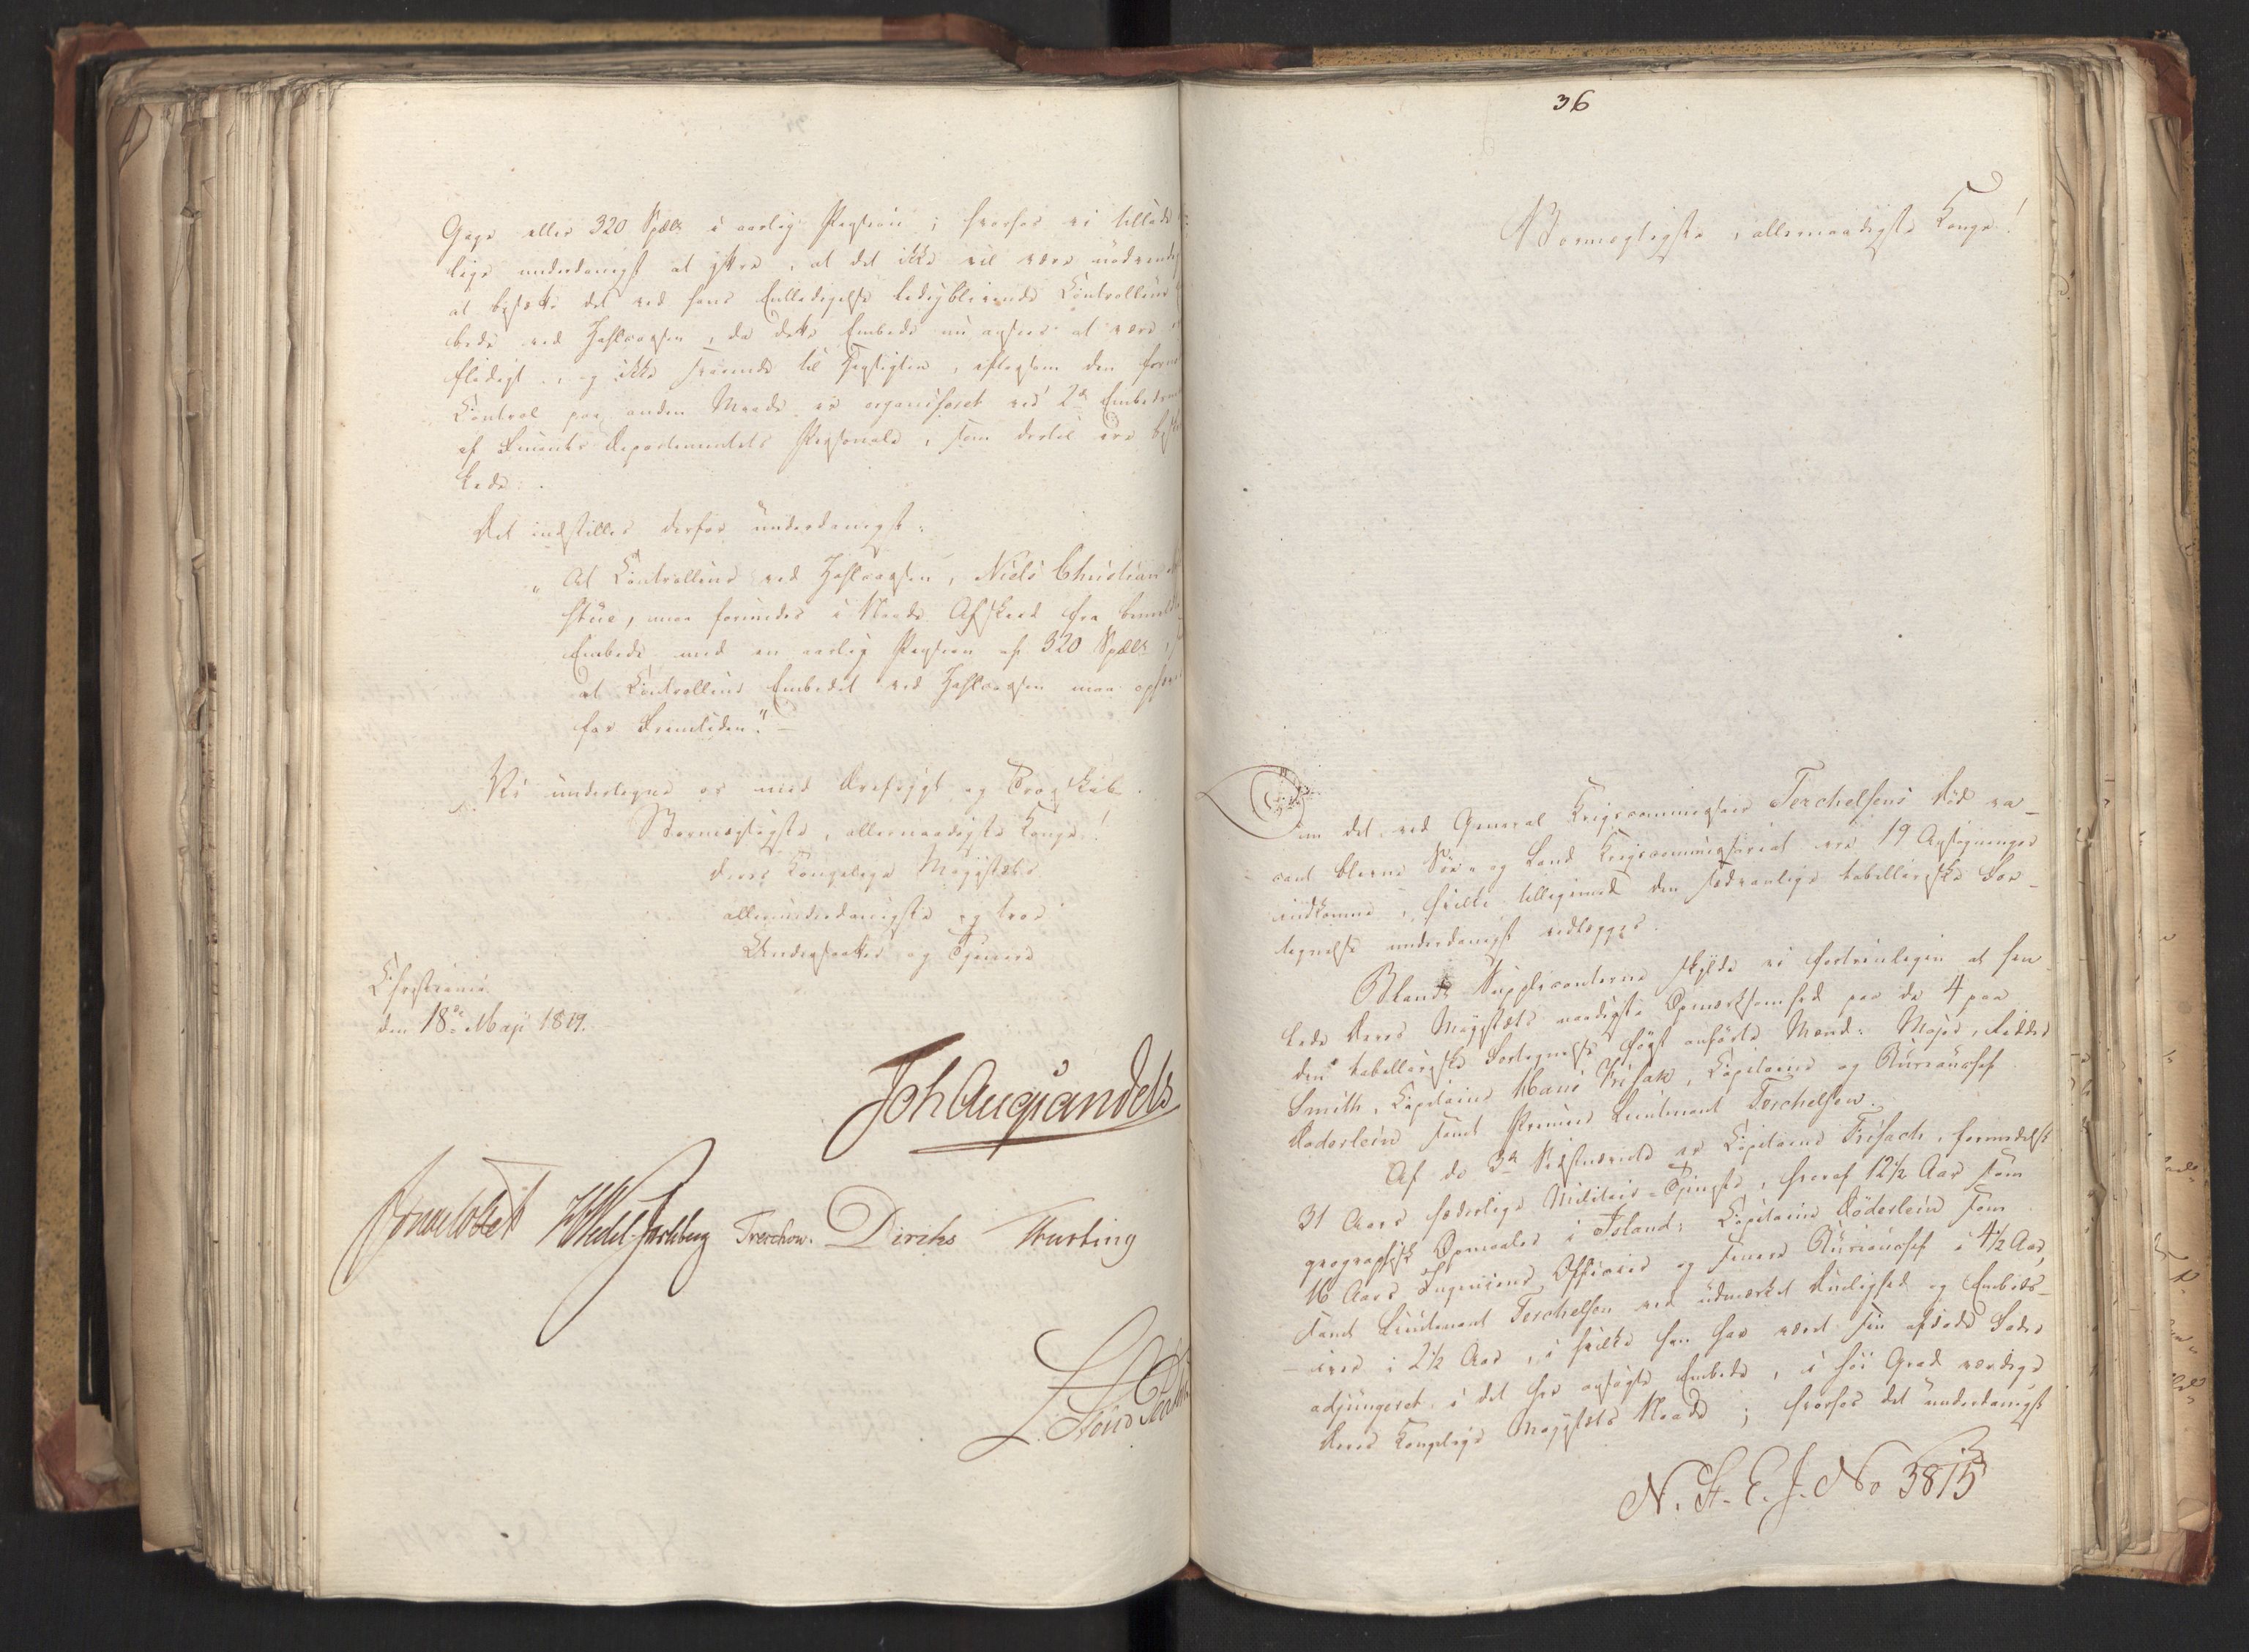 Gage eller 320 Spdlr i aarlig Pension; hvorfor vi tillade
lige underdanigst at yttre, at det ikke vil være nødvendig
at besætte det ved hans Entledigelse ledigblivende Controlleur
bede ved Zahlcassen, da dette Embede nu ansees at være
flødigt, og ikke svarende til Hensigten, eftersom den fornø
Control paa anden Maade er organiseret ved 2de Embedsmæ
af Finants-Departementets Personale, som dertil ere besk
kede.
Det indstilles derfor underdanigst:
"At Controlleur ved Zahlcassen, Niels Christian
stue, maa forundes i Naade Afskeed fra bemeldte
Embede med en aarlig Pension af 320 Spdlr,
at Controlleur Embedet ved Zahlcassen maa ophæve
for Fremtiden."
Vi undertegne os med Ærefrygt og Troeskab.
Stormægtigste, allernaadigste Konge!
Deres Kongelige Majestæts
allerunderdanigste og troe
Undersaatter og Tjenere
Christiania
den 18de Maji 1819.
Joh Aug Sandels
Sommelldt HWedel-Jarlsberg Treschow. Diriks Krebting
L.
36
Stormægtigste, allernaadigste Konge!
Om det ved General Krigscommissair Terchelsens Død va-
cant blevne Søe- og Land Krigscommissariat ere 19 Ansøgninger
indkomne, hvilke tilligemed den sædvanlige tabellariske For-
tegnelse underdanigst vedlægges.
Blandt Supplicanterne skylde vi fortrinligen at hen-
lede Deres Majestæts naadigste Opmærksomhed paa de 4 paa
den tabellariske Fortegnelse først anførte Mænd: Major, Ridder
Smith, Capitaine Hans Frisak, Capitaine og Bureauchef
Doderlein samt Premier Lieutenant Terchelsen.
Af de 3de Sidstnævnte er Capitaine Frisach, formedelst
31 Aars hæderlige Militair-Tjeneste, hvoraf 12½ Aar som
geographisk Opmaaler i Island; Capitaine Döderlein som
16 Aars Ingenieur Officier og senere Bureauchef i 4½ Aar,
samt Lieutenant Terchelsen ved udmærket Duelighed og Embeds-
iver i 2½ Aar, i hvilke han har været sin afdøde Fader
adjungeret i det her ansøgte Embede, i høi Grad værdige
Deres Kongelige Majestæts Naade; hvorfor det underdanigst
N. St. E. J. No 3815